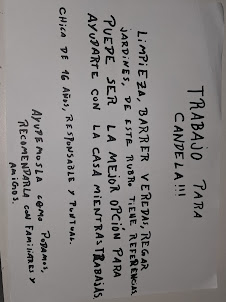 TRABAJO PARA
CANDELA!!!
LIMPIEZA, BARRER VEREDAS, REGAR
JARDINES, DE ESTE RUBRO TIENE REFERENCIAS
PUEDE SER LA MEJOR OPCIÓN PARA
AYUDARTE CON LA CASA MIENTRAS TRABAJAS.
CHICA DE 16 AÑOS, RESPONSABLE Y PUNTUAL.
AYUDEMOSLA COMO PODAMOS,
RECOMENDARLA CON FAMILIARES Y
AMIGOS.